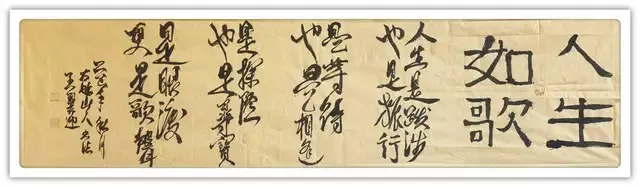 人生
如歌
人生是跋涉
也是旅行
是等待
也是相逢
是探险
也是寻宝
是眼泪
更是歌声
山人